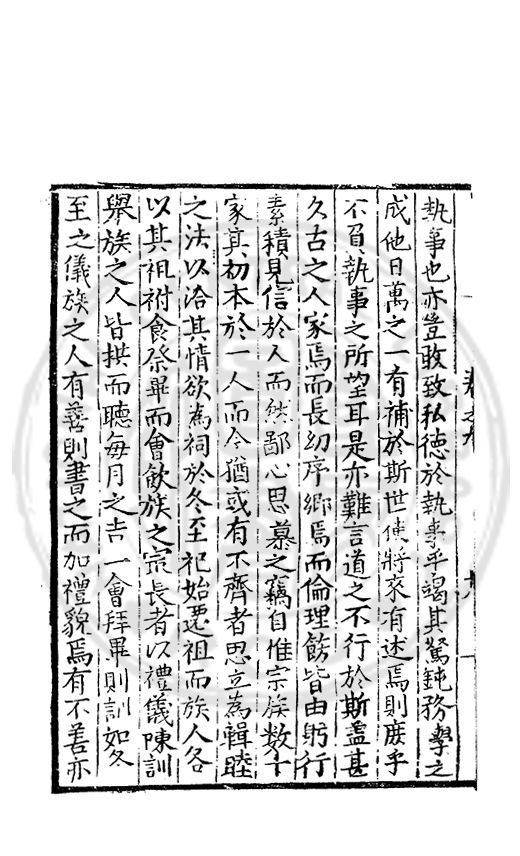 執事也亦豈敢致私德於執事乎竭其駑鈍務學之
成他日萬之一有補於斯世使將來有述焉則庶乎
不負執事之所望耳是亦難言道之不行於斯盖甚
久古之人家焉而長幼序鄉焉而倫理飭皆由躬行
素積見信於人而然鄙心思慕之竊自惟宗族數十
家其初本於一人而今猶或有不齊者思立為輯睦
之法以洽其情欲為祠於冬至祀始遷祖而族人各
以其祖祔食祭畢而會飲族之宗長者以禮儀陳訓
舉族之人皆拱而聽每月之吉一會拜畢則訓如冬
至之儀族之人有善則書之而加禮貌焉有不善亦